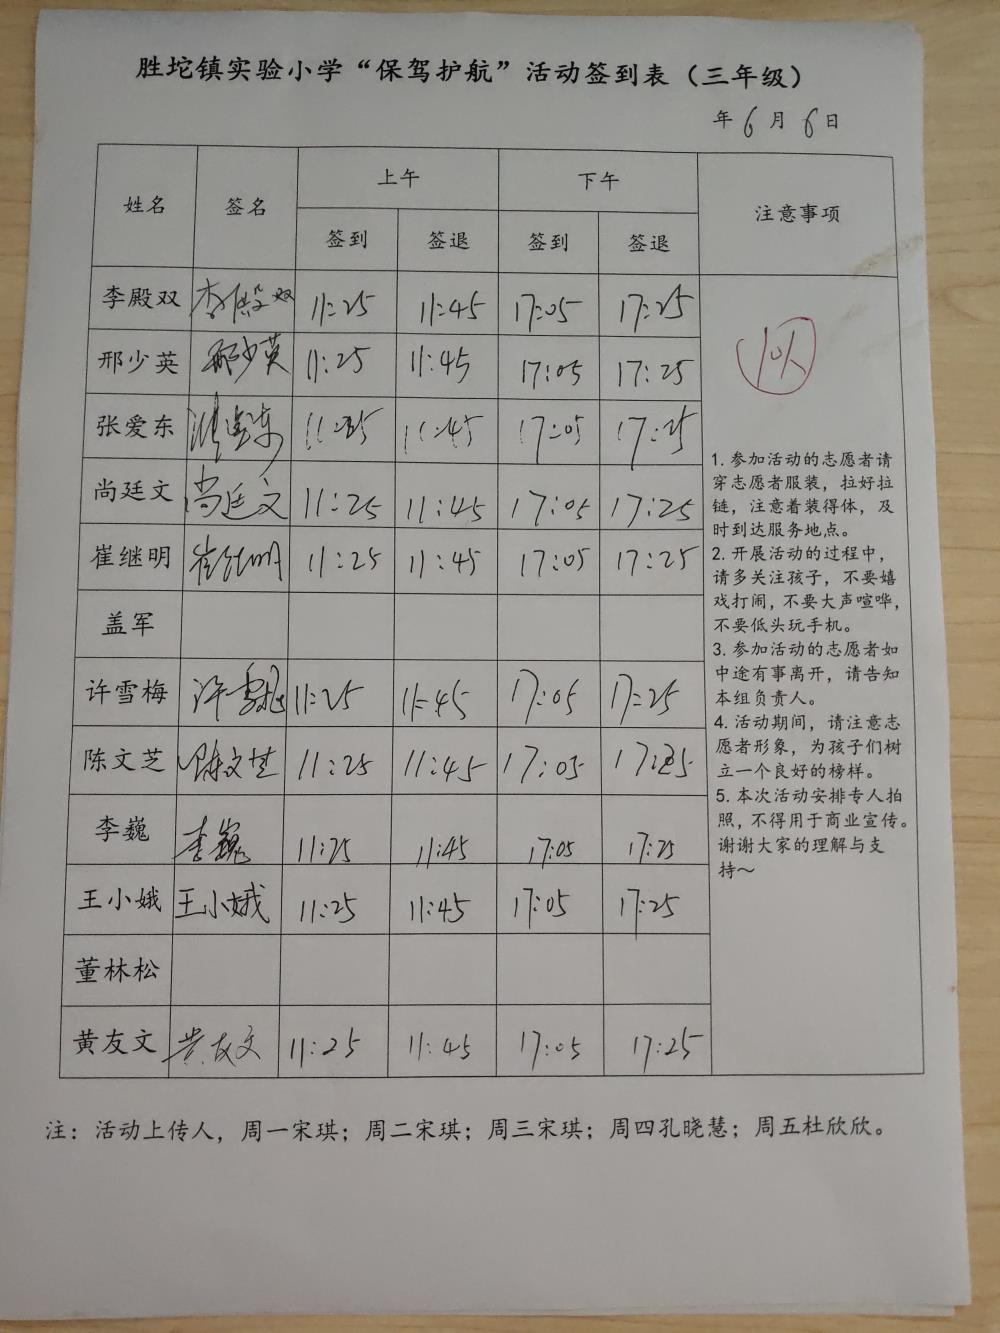 胜坨镇实验小学“保驾护航”活动签到表（三年级）
年6月6日
姓名 签名 上午 下午 注意事项
签到 签退 签到 签退
李殿双 李殿双 11:25 11:45 17:05 17:25
邢少英 邢少英 11:25 11:45 17:05 17:25
张爱东 张爱东 11:25 11:45 17:05 17:25
尚廷文 尚廷文 11:25 11:45 17:05 17:25
崔继明 崔继明 11:25 11:45 17:05 17:25
盖军
许雪梅 许雪梅 11:25 11:45 17:05 17:25
陈文芝 陈文芝 11:25 11:45 17:05 17:25
李巍 李巍 11:25 11:45 17:05 17:25
王小娥 王小娥 11:25 11:45 17:05 17:25
董林松
黄友文 黄友文 11:25 11:45 17:05 17:25
10人
1. 参加活动的志愿者请
穿志愿者服装，拉好拉
链，注意着装得体，及
时到达服务地点。
2. 开展活动的过程中，
请多关注孩子，不要嬉
戏打闹，不要大声喧哗，
不要低头玩手机。
3. 参加活动的志愿者如
中途有事离开，请告知
本组负责人。
4. 活动期间，请注意志
愿者形象，为孩子们树
立一个良好的榜样。
5. 本次活动安排专人拍
照，不得用于商业宣传。
谢谢大家的理解与支
持～
注：活动上传人，周一宋琪；周二宋琪；周三宋琪；周四孔晓慧；周五杜欣欣。